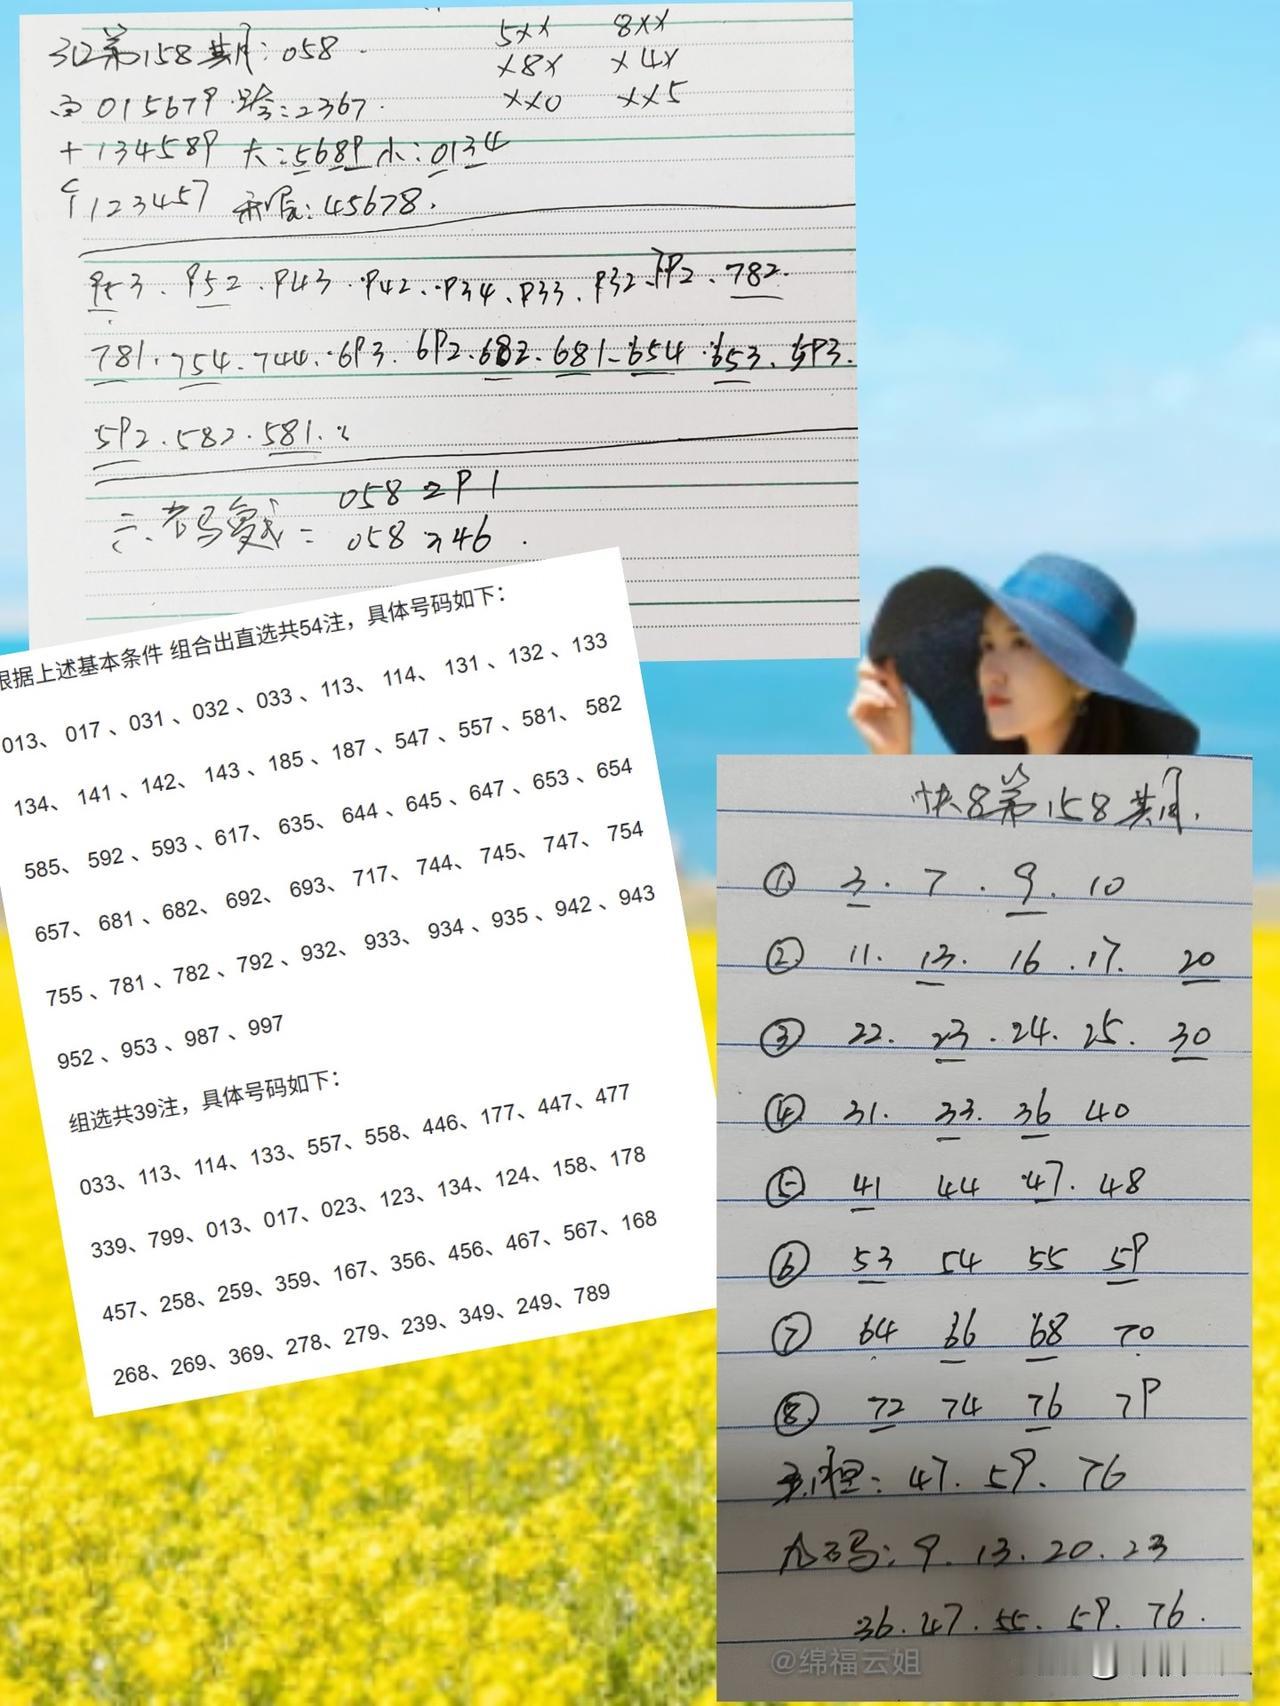 3D第158期:058.
5xx 8xx
x8x x4x
xx0 xx5
百015679 跨:2367.
十134589 大:5689小:0134
个123457 和尾:45678.
953.952.943.942.934.933.932.792.782.
781.754.744.693.692.682.681.654.653.593.
592.582.581.
六码复式=058291
058246.
根据上述基本条件 组合出直选共54注，具体号码如下：
013、017、031、032、033、113、114、131、132、133
134、141、142、143、185、187、547、557、581、582
585、592、593、617、635、644、645、647、653、654
657、681、682、692、693、717、744、745、747、754
755、781、782、792、932、933、934、935、942、943
952、953、987、997
组选共39注，具体号码如下：
033、113、114、133、557、558、446、177、447、477
339、799、013、017、023、123、134、124、158、178
457、258、259、359、167、356、456、467、567、168
268、269、369、278、279、239、349、249、789
快8第158期.
① 3.7.9.10
② 11.13.16.17.20
③ 22.23.24.25.30
④ 31.33.36 40
⑤ 41 44 47.48
⑥ 53 54 55 59
⑦ 64 66 68 70
⑧ 72 74 76 79
:47.59.76
九码:9.13.20.23
36.47.55.59.76.
@绵福云姐